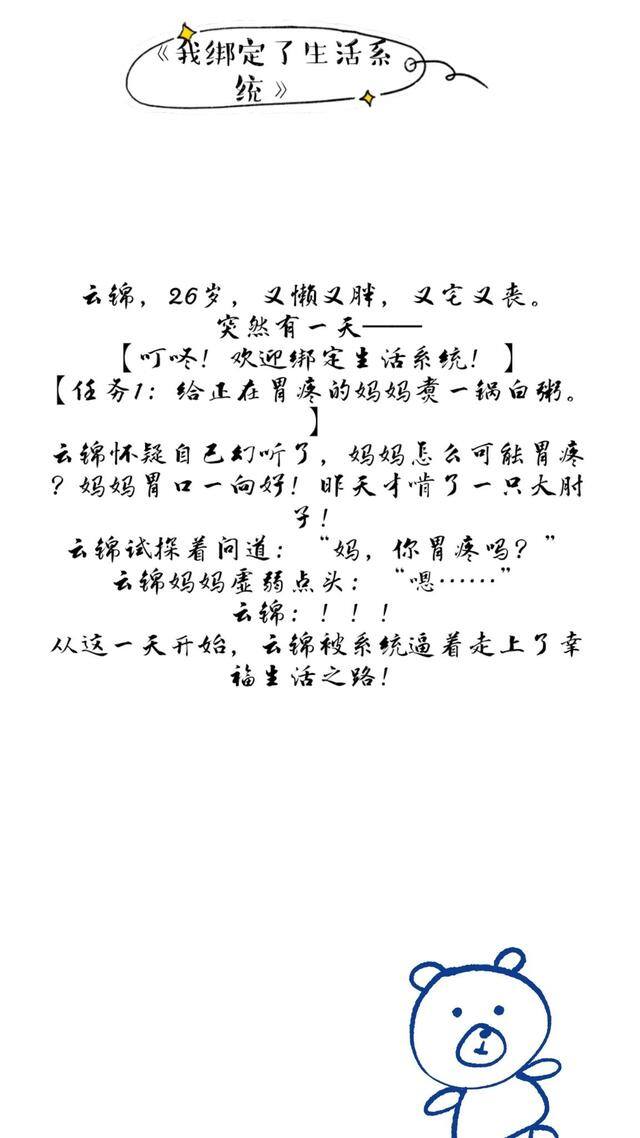 《我绑定了生活系
统》
云锦，26岁，又懒又胖，又宅又丧。
突然有一天——
【叮咚！欢迎绑定生活系统！】
【任务1：给正在胃疼的妈妈煮一锅白粥。
】
云锦怀疑自己幻听了，妈妈怎么可能胃疼
？妈妈胃口一向好！昨天才啃了一只大肘
子！
云锦试探着问道：“妈，你胃疼吗？”
云锦妈妈虚弱点头：“嗯……”
云锦：！！！
从这一天开始，云锦被系统逼着走上了幸
福生活之路！